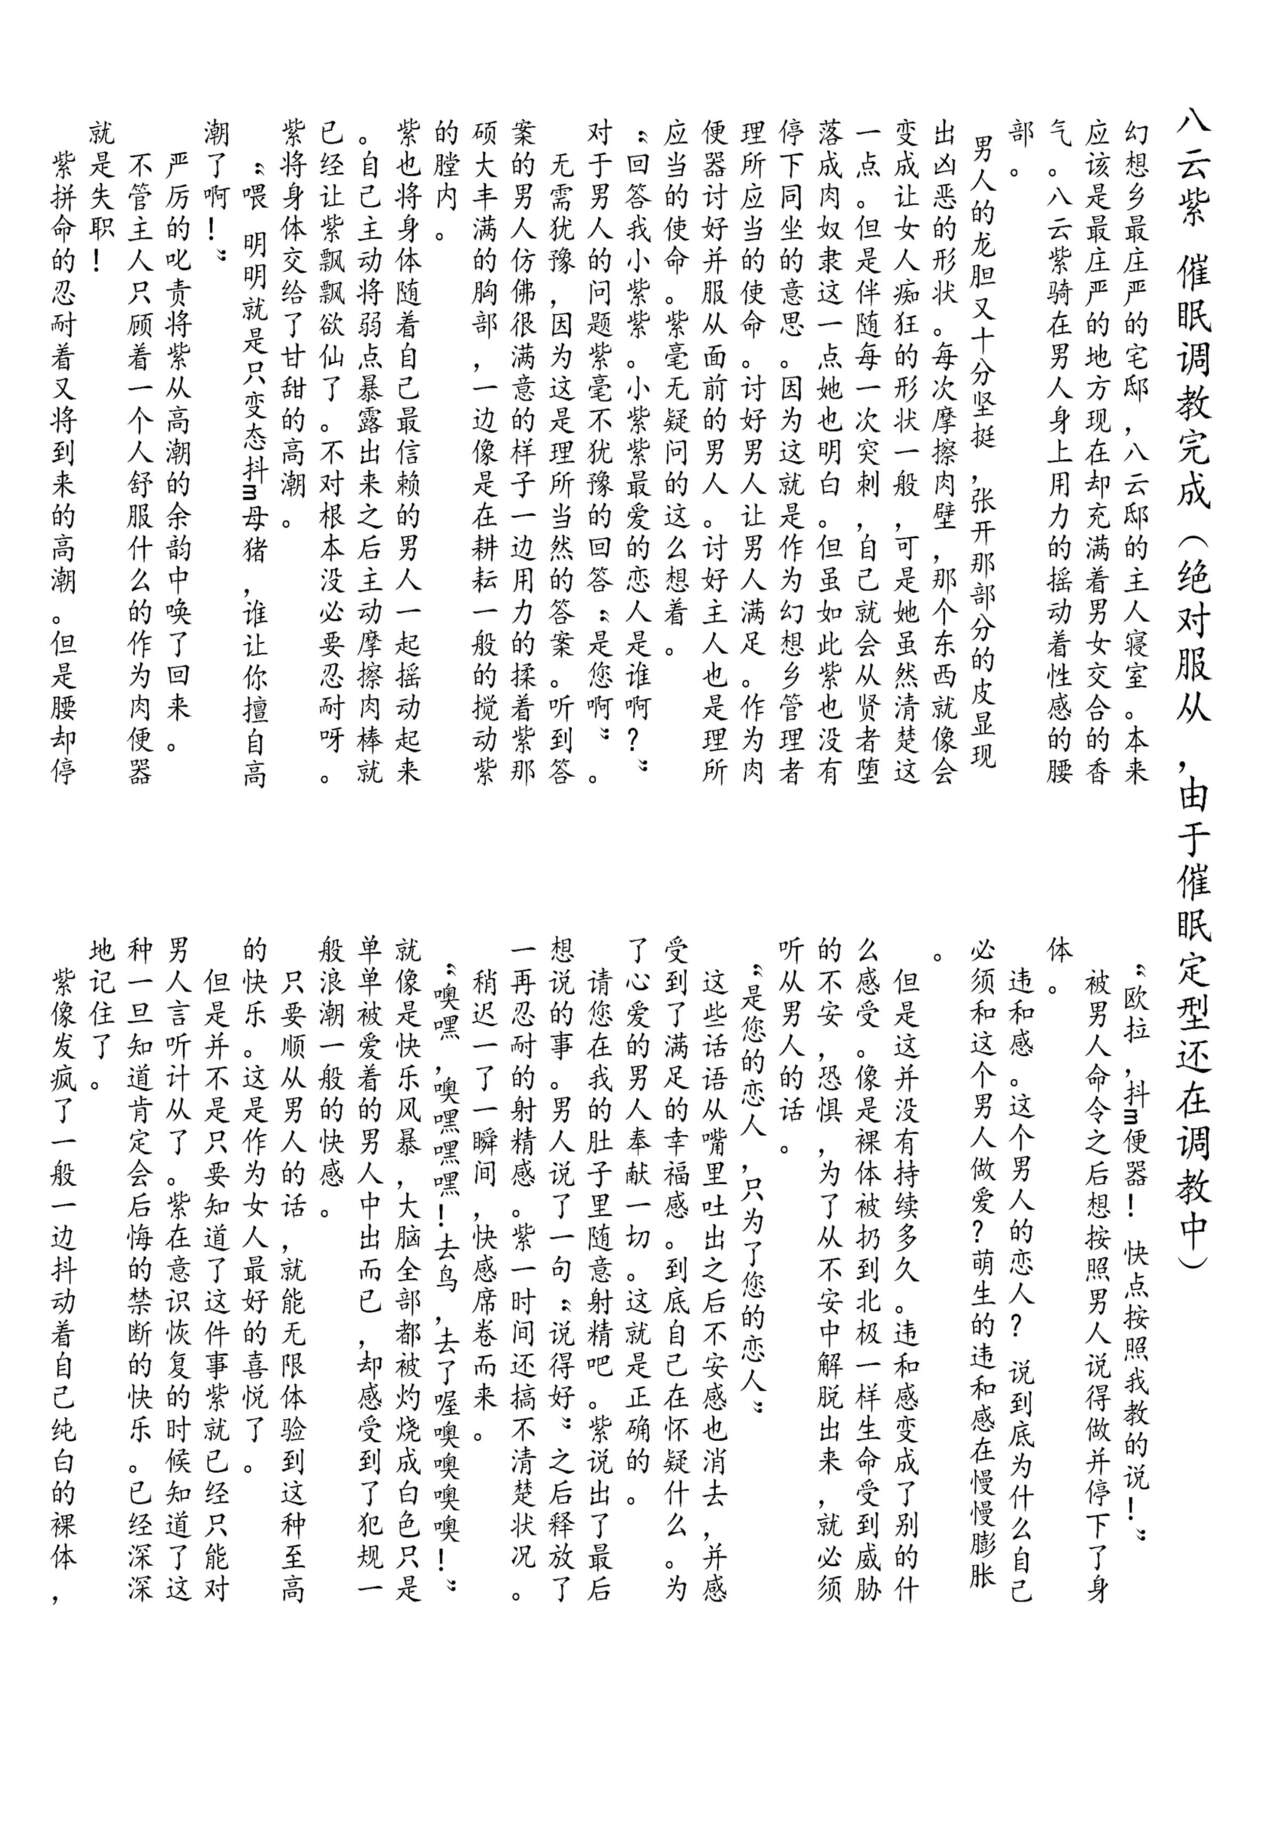 八云紫 催眠调教完成（绝对服从，由于催眠定型还在调教中）
幻想乡最庄严的宅邸，八云邸的主人寝室。本来
应该是最庄严的地方现在却充满着男女交合的香
气。八云紫骑在男人身上用力的摇动着性感的腰
部。
男人的龙胆又十分坚挺，张开那部分的皮显现
出凶恶的形状。每次摩擦肉壁，那个东西就像会
变成让女人痴狂的形状一般，可是她虽然清楚这
一点。但是伴随每一次突刺，自己就会从贤者堕
落成肉奴隶这一点她也明白。但虽如此紫也没有
停下同坐的意思。因为这就是作为幻想乡管理者
理所应当的使命。讨好男人让男人满足。作为肉
便器讨好并服从面前的男人。讨好主人也是理所
应当的使命。紫毫无疑问的这么想着。
“回答我小紫紫。小紫紫最爱的恋人是谁啊？”
对于男人的问题紫毫不犹豫的回答“是您啊”。
无需犹豫，因为这是理所当然的答案。听到答
案的男人仿佛很满意的样子一边用力的揉着紫那
硕大丰满的胸部，一边像是在耕耘一般的搅动紫
的膛内。
紫也将身体随着自己最信赖的男人一起摇动起来
。自己主动将弱点暴露出来之后主动摩擦肉棒就
已经让紫飘飘欲仙了。不对根本没必要忍耐呀。
紫将身体交给了甘甜的高潮。
“喂 明明就是只变态抖m母猪，谁让你擅自高
潮了啊！”
严厉的叱责将紫从高潮的余韵中唤了回来。
不管主人只顾着一个人舒服什么的作为肉便器
就是失职！
紫拼命的忍耐着又将到来的高潮。但是腰却停
“欧拉，抖m便器！ 快点按照我教的说！”
被男人命令之后想按照男人说得做并停下了身
体。
违和感。这个男人的恋人？ 说到底为什么自己
必须和这个男人做爱？萌生的违和感在慢慢膨胀
。
但是这并没有持续多久。违和感变成了别的什
么感受。像是裸体被扔到北极一样生命受到威胁
的不安，恐惧，为了从不安中解脱出来，就必须
听从男人的话。
“是您的恋人，只为了您的恋人”
这些话语从嘴里吐出之后不安感也消去，并感
受到了满足的幸福感。到底自己在怀疑什么。为
了心爱的男人奉献一切。这就是正确的。
请您在我的肚子里随意射精吧。紫说出了最后
想说的事。男人说了一句“说得好”之后释放了
一再忍耐的射精感。紫一时间还搞不清楚状况。
稍迟一了一瞬间，快感席卷而来。
“噢嘿，噢嘿嘿嘿！去鸟，去了喔噢噢噢噢！”
就像是快乐风暴，大脑全部都被灼烧成白色只是
单单被爱着的男人中出而已，却感受到了犯规一
般浪潮一般的快感。
只要顺从男人的话，就能无限体验到这种至高
的快乐。这是作为女人最好的喜悦了。
但是并不是只要知道了这件事紫就已经只能对
男人言听计从了。紫在意识恢复的时候知道了这
种一旦知道肯定会后悔的禁断的快乐。已经深深
地记住了。
紫像发疯了一般一边抖动着自己纯白的裸体，